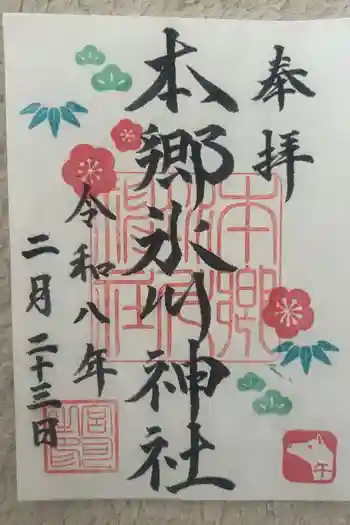 奉拝
本郷氷川神社
令和八年
二月二十三日
本郷
氷川
神社
午